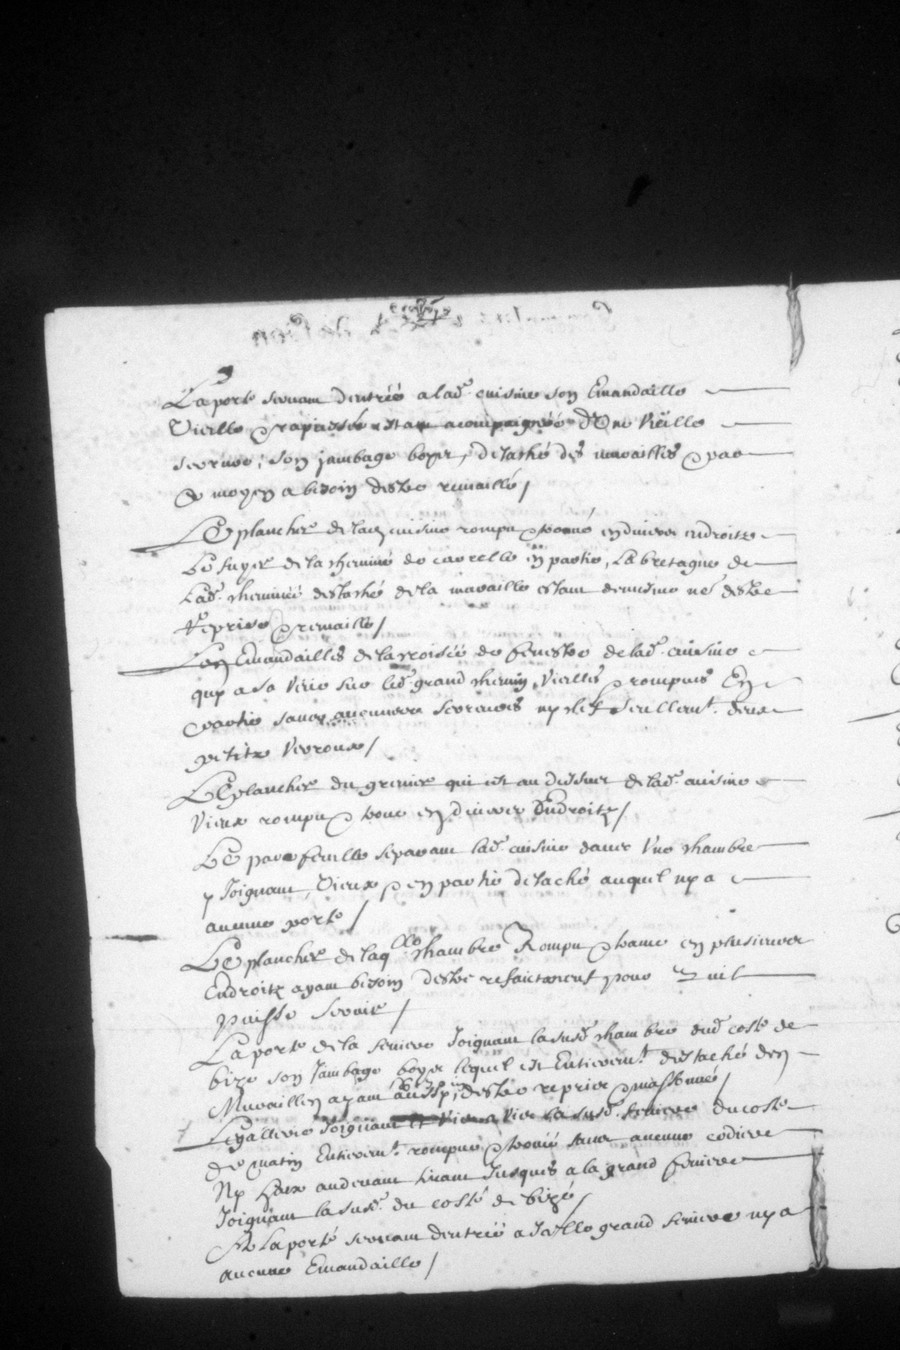 La porte servant dentrée a lad. cuisine son Emandaille
Vieille & rapiessée estant acompaignée d'Une Vieille
serrure, son jambage boyer, détaché des muraillies & par
Ce moyen a bezoin destre remaillé /
Le plancher de lad. cuisine rompu & troué en divers endroitz
Le fuyer de la cheminé de carrelle en partie, La bretagne de
Lad. cheminée destaché de la muraille estant de mesme nes. destre
Reprise & remaillé /
Les Emandailles de la croisée de fenestre de lad. cuisine
quy a sa Veue sur led. grand chemin, Vieilles & rompues En
partie sans aucunnes serreures ny clef seullem.t deux
petitz Verroux /
Le plancher du grenier qui est au dessus de lad. cuisine
Vieux rompu & troué en divers Endroitz /
Le parefeuille séparant lad. cuisine dans Une chambre
y Joignant, Vieux & en partie détaché auquel ny a
aucune porte /
Le plancher de laq.lle chambre Rompu & troué en plusieurs
Endroitz ayant bezoin destre pour quil
puisse servir /
La porte de la feniere Joignant la susd. chambre du costé de
bize son Jambage boyer lequel est Entierem.t destaché des
Murailles ayant aussy destre reprise & massonné /
La gallerie Joignant la susd. feniere du costé
de matin Entierem.t rompue & trouée sans aucunne
Ny tirant Jusques a la grand feniere
Joignant la susd. du costé de bize /
A La porte servant dentrée a Icelle grand feniere ny a
aucune Emandaille /